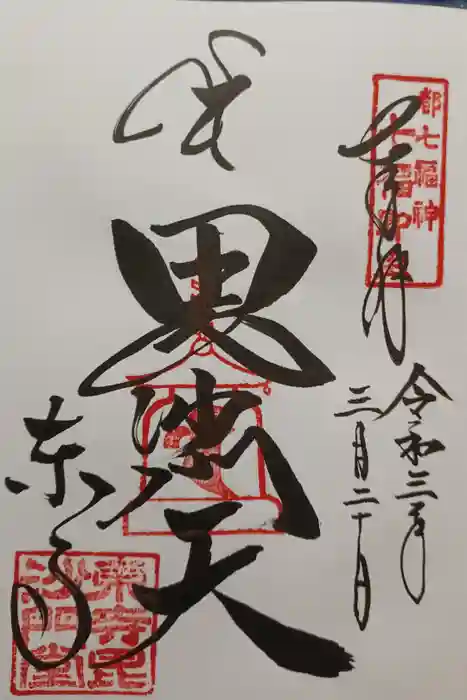 都七福神
奉拝
令和三年
三月二十日
毘沙門天
東寺
東寺毘
沙門堂